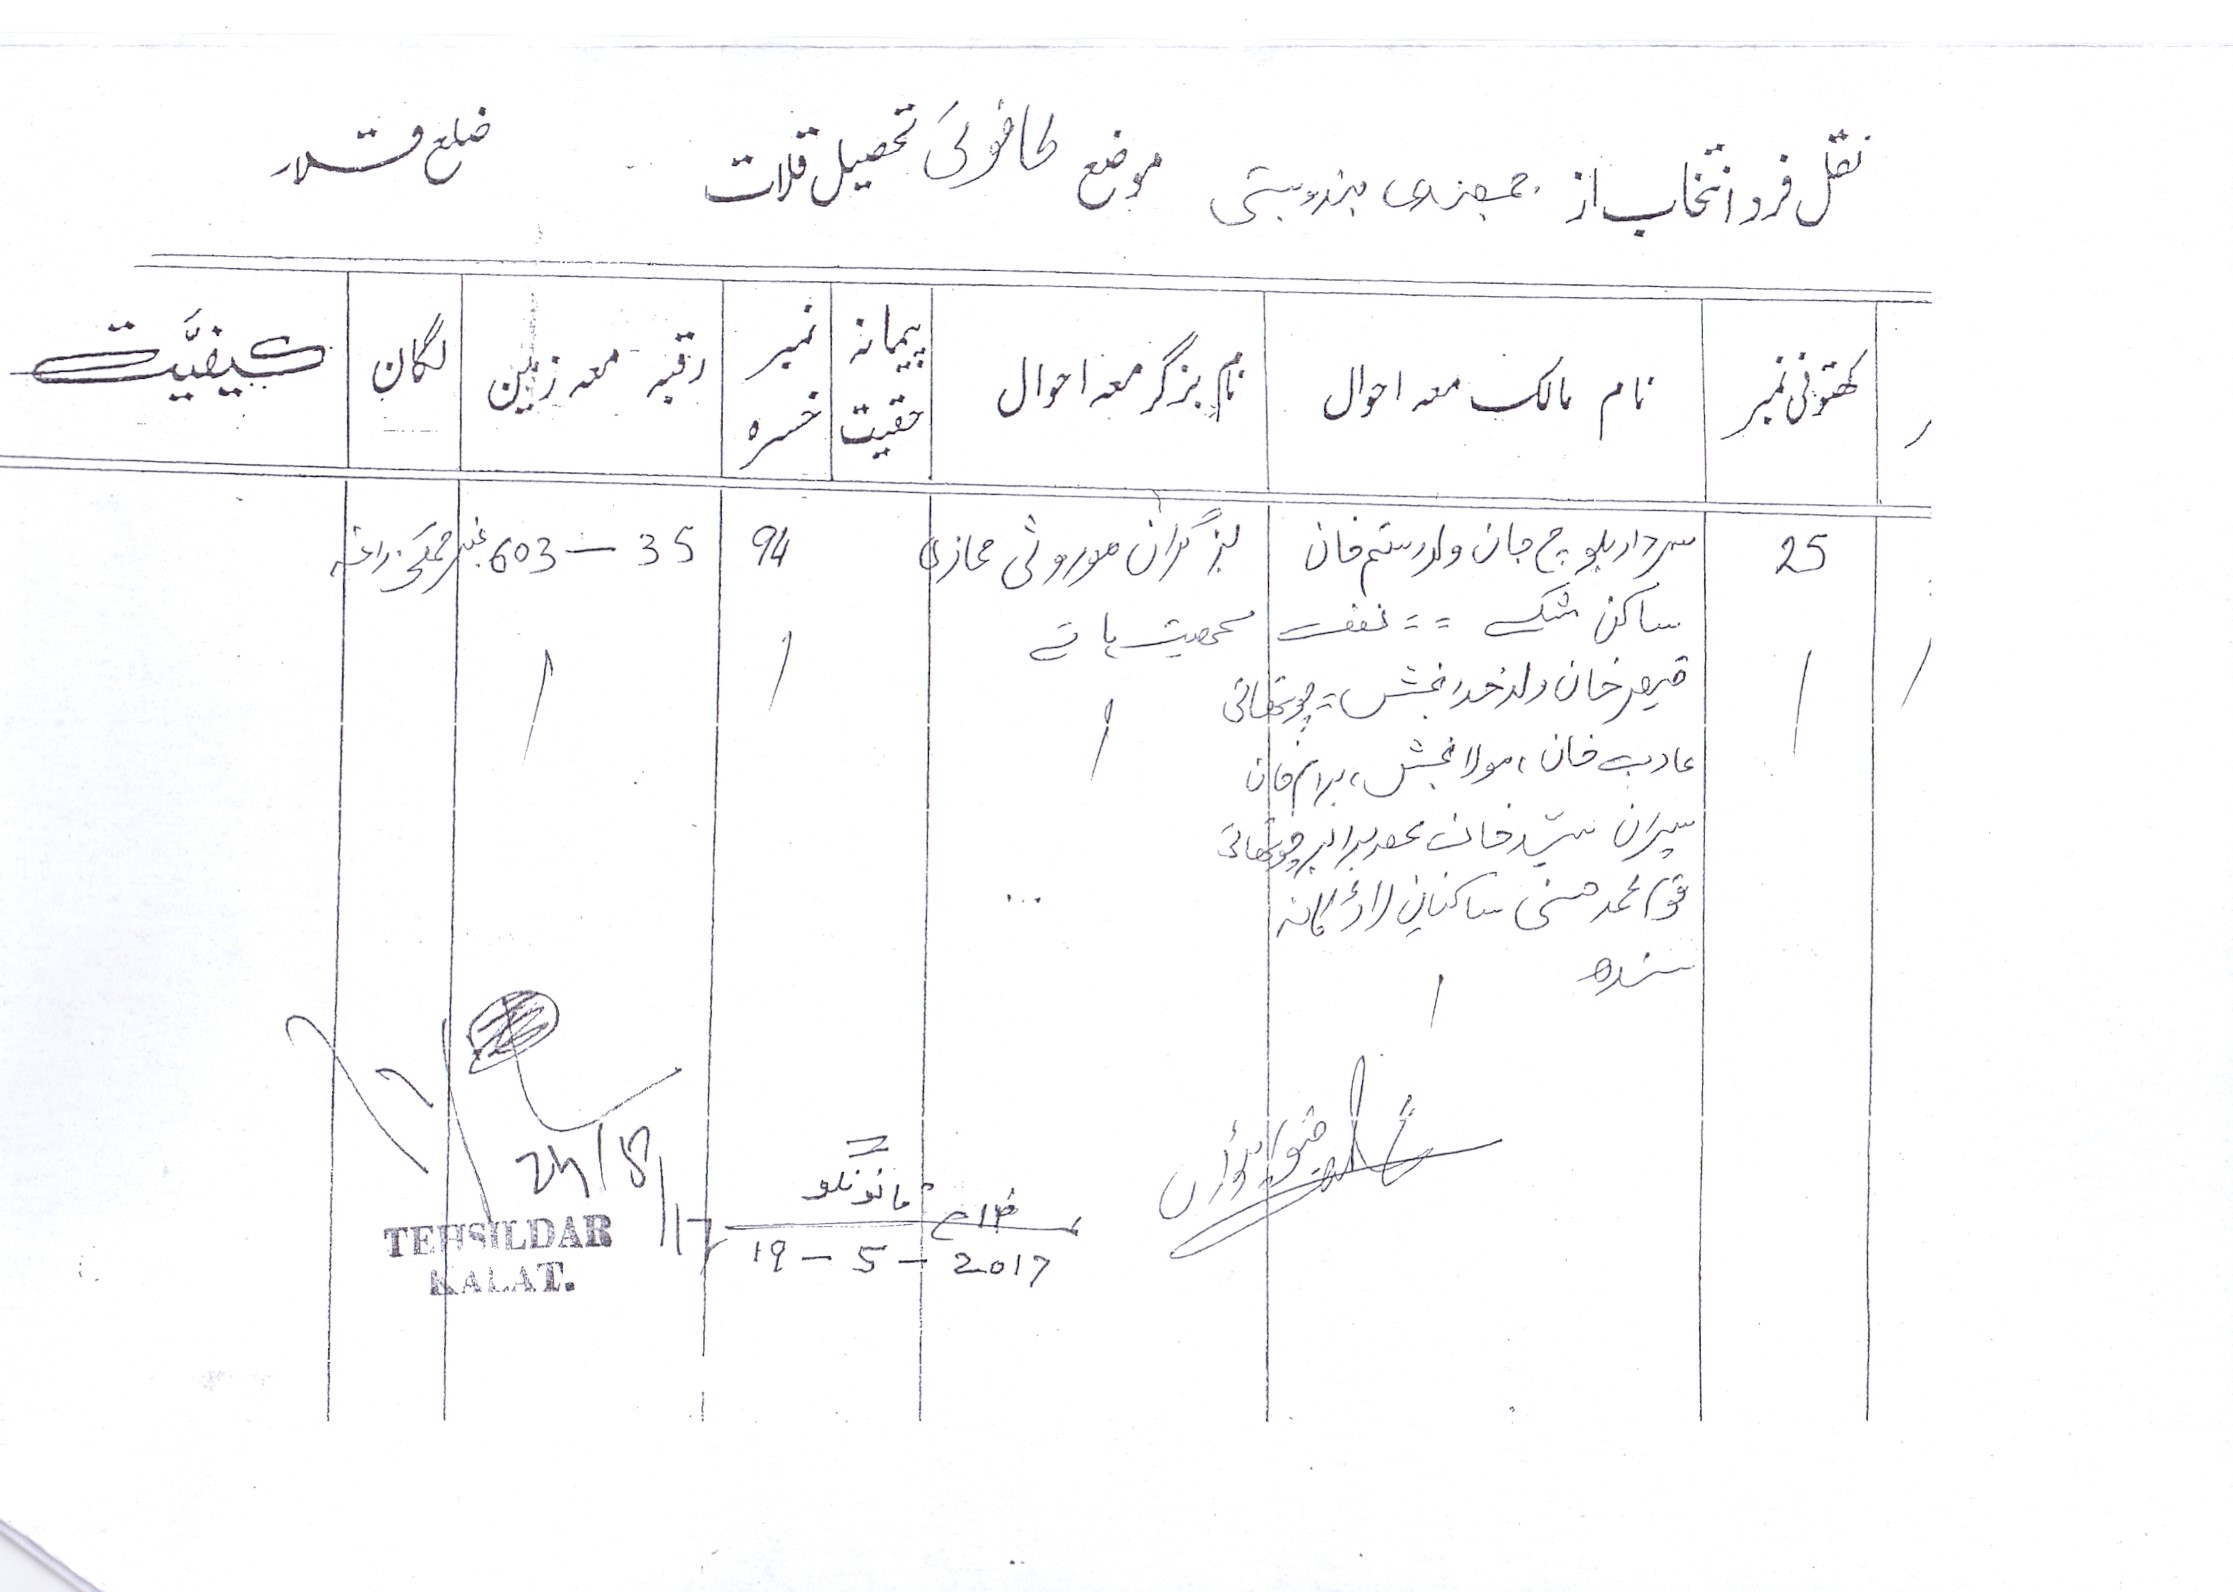 نقل فرد انتخاب از جمعبندی بندوبستی موضع طافوئی تحصیل قلات ضلع قلات
کھتونی نمبر
نام مالک معہ احوال
نام بزگر معہ احوال
پیمانہ حقیت
نمبر خسرہ
رقبہ معہ زمین
لگان
کیفیّت
25
سردار بلوچ خان ولد رستم خان
ساکن مشکے = = نصف
قیصر خان ولد خدا بخش = چوتھائی
عارب خان، مولا بخش، بہرام خان
پسران سید خان بحصہ برابر چوتھائی
قوم محمد حسنی ساکنان لاڑکانہ
سندھ
بزگران موروثی
94
603 — 35
24/8/17
TEHSILDAR
KALAT.
19 - 5 - 2017